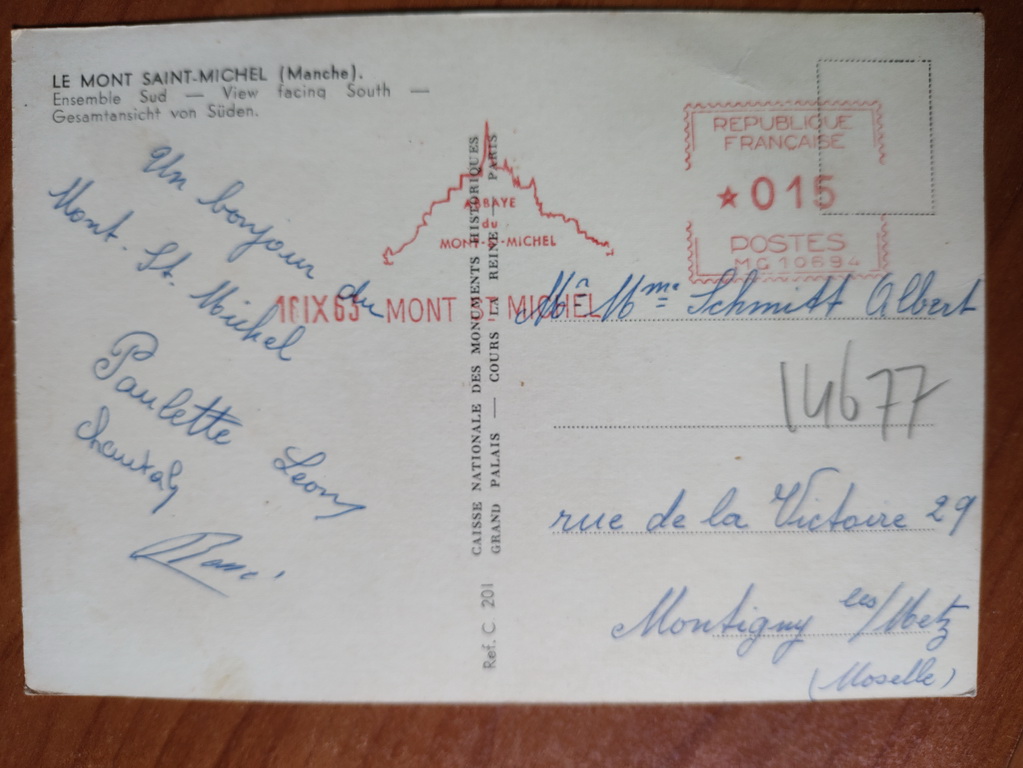 LE MONT SAINT-MICHEL (Manche).
Ensemble Sud — View facing South —
Gesamtansicht von Süden.
Un bonjour du
Mont-St. Michel
Paulette Léon
Chantal
René
CAISSE NATIONALE DES MONUMENTS HISTORIQUES
GRAND PALAIS — COURS LA REINE — PARIS
Ref. C. 201
ABBAYE
du
MONT-St-MICHEL
MONT St MICHEL
REPUBLIQUE
FRANÇAISE
★015
POSTES
MG10694
Mr Mme Schmitt Albert
14677
rue de la Victoire 29
Montigny les/Metz
(Moselle)